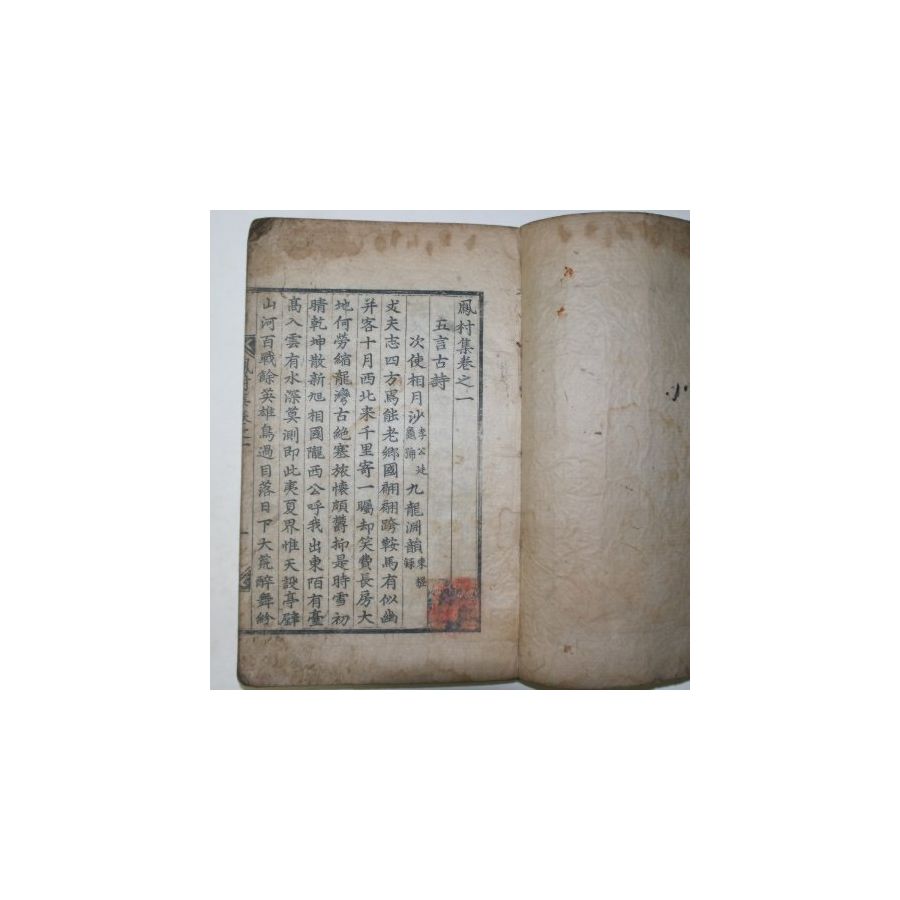 鳳村集卷之一
五言古詩
次使相月沙李公廷龜號九龍淵韻東槎錄
丈夫志四方焉能老鄉國翩翩跨鞍馬有似幽
并客十月西北来千里寄一矚却笑費長房大
地何勞縮龍灣古絶塞旅懷頗欝抑是時雪初
晴乾坤散新旭相國隴西公呼我出東陌有臺
髙入雲有水深莫測即此夷夏界惟天設亭壁
山河百戰餘英雄鳥過目落日下大荒醉舞紛